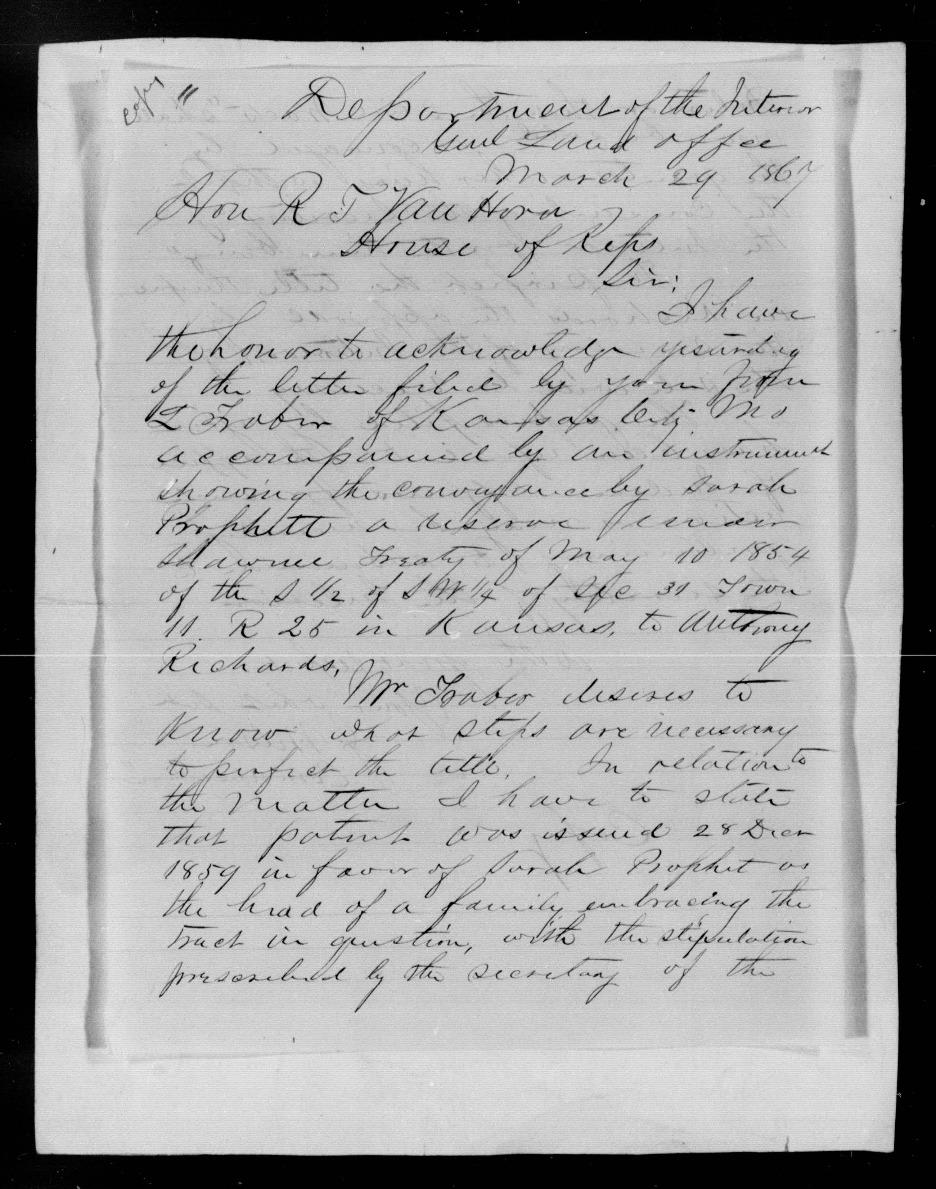 Copy "
Department of the Interior
Genl Land Office
March 29 1867
Hon R T Van Horn
House of Reps
Sir:
I have
the honor to acknowledge
of the letter filed by you from
L Traber of Kansas City Mo
accompanied by an instrument
showing the conveyance by Sarah
Prophett a reserve under
Shawnee Treaty of May 10 1854
of the S 1/2 of S W 1/4 of Sec 31 Town
11. R 25 in Kansas, to Anthony
Richards,
Mr Traber desires to
know what steps are necessary
to perfect the title. In relation to
the matter I have to state
that patent was issued 28 Decr
1859 in favor of Sarah Prophet as
the head of a family embracing the
tract in question, with the stipulation
prescribed by the secretary of the